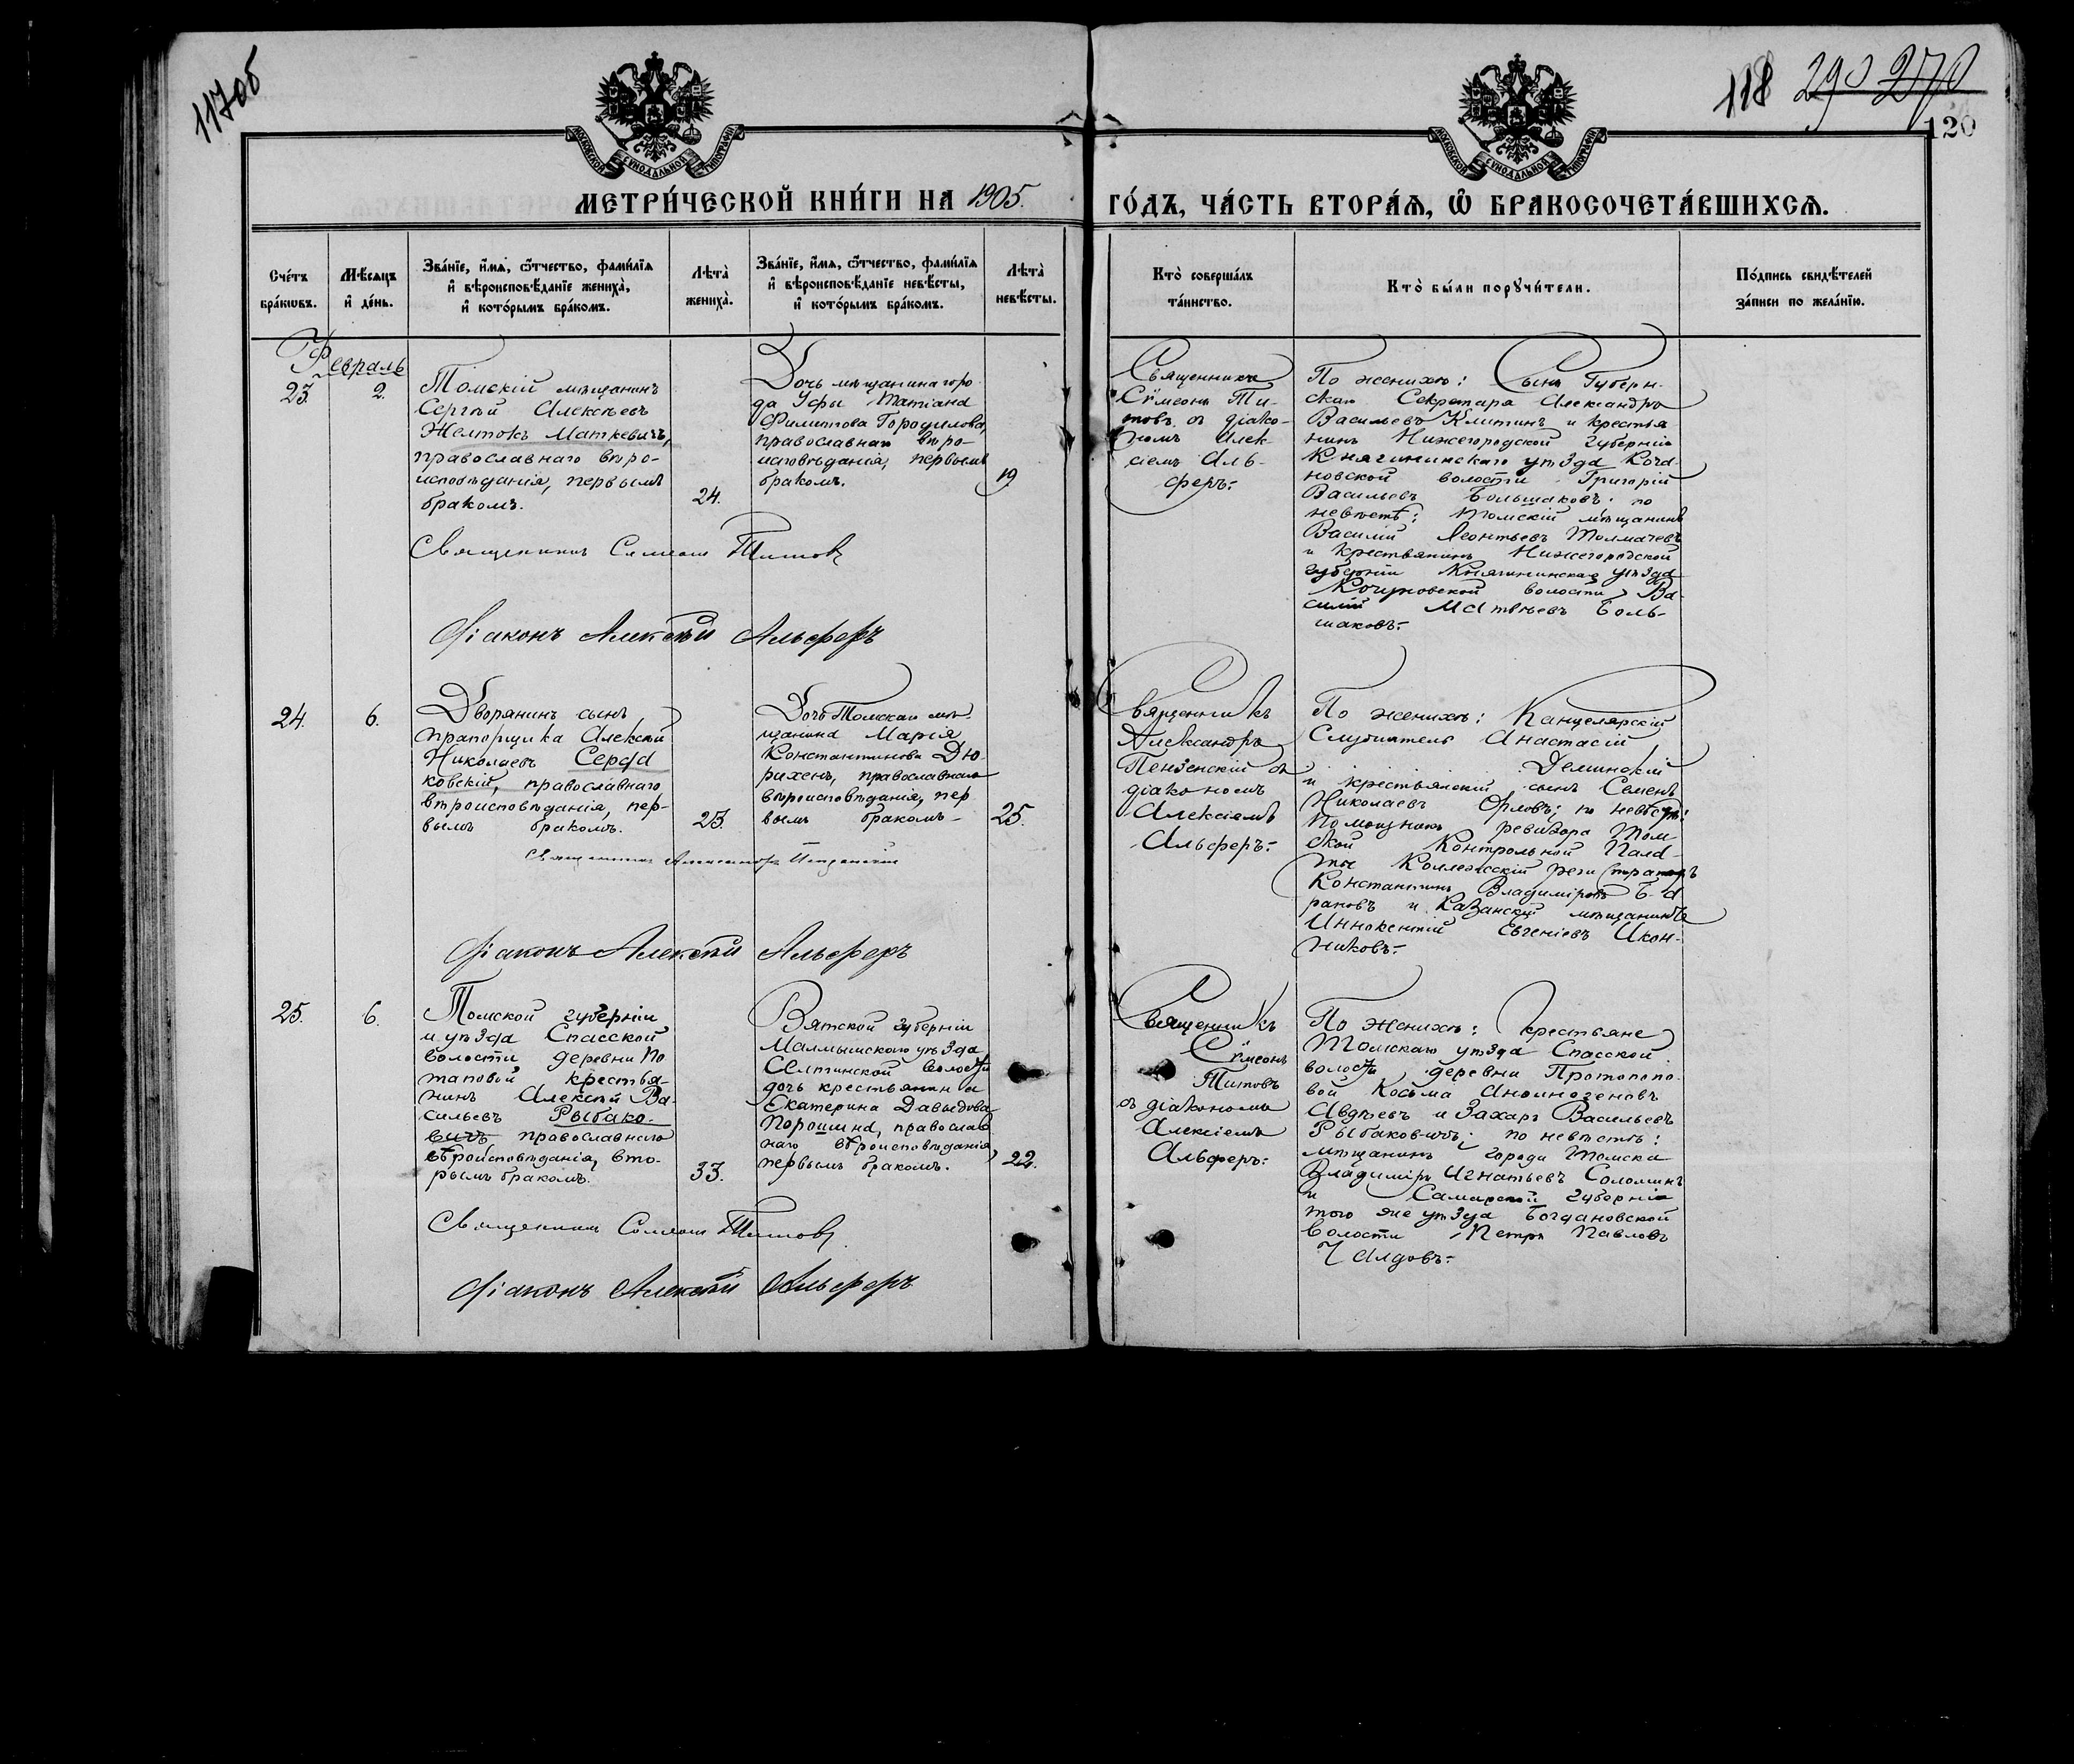 117об
118 290 270
120
МОСКОВСКОЙ СѴНОДАЛЬНОЙ ТИПОГРАФІИ
МОСКОВСКОЙ СѴНОДАЛЬНОЙ ТИПОГРАФІИ
МЕТРИ́ЧЕСКОЙ КНИ́ГИ НА 1905. ГО́ДЪ, ЧА́СТЬ ВТОРА́Ѧ, Ѽ БРАКОСОЧЕТА́ВШИХСѦ.
Сче́тъ
бра́кѡвъ.
Мѣ́сѧцъ
и҆ де́нь.
Зва́нїе, и҆́мѧ, ѻ҆́тчество, фами́лїѧ
и҆ вѣроисповѣ́данїе жениха̀,
и҆ кото́рымъ бра́комъ.
Лѣта̀
жениха̀.
Зва́нїе, и҆́мѧ, ѻ҆́тчество, фами́лїѧ
и҆ вѣроисповѣ́данїе невѣ́сты,
и҆ кото́рымъ бра́комъ.
Лѣта̀
невѣ́сты.
Кто̀ соверша́лъ
та́инство.
Кто̀ бы́ли порꙋчи́тели.
По́дпись свидѣ́телей
за́писи по жела́нїю.
Февраль
23.
2.
Томскій мѣщанинъ
Сергѣй Алексѣевъ
Желтокъ Маткевичъ,
православнаго вѣро-
исповѣданія, первымъ
бракомъ.
24.
Дочь мѣщанина горо-
да Уфы Татіана
Филиппова Городилова,
православнаго вѣро-
исповѣданія, первымъ
бракомъ.
19
Священникъ
Сѵмеонъ Ти-
товъ съ діако-
номъ Алек-
сіемъ Аль-
феръ.-
По женихѣ: Сынъ Губерн-
скаго Секретаря Александръ
Васильевъ Климинъ и крестья
нинъ Нижегородской губерніи
Княгининскаго уѣзда
новской волости Григорій
Васильевъ Большаковъ: по
невѣстѣ: Томскій мѣщанинъ
Василій Леонтьевъ Толмачевъ
и крестьянинъ Нижегородской
губерніи Княгининскаго уѣзда
волости Ва-
силій Матвѣевъ Боль-
шаковъ.-
Священникъ Симеонъ Титовъ
Діаконъ Алексѣй Альферъ
24.
6.
Дворянинъ сынъ
прапорщика Алексѣй
Николаевъ Серда
ковскій, православнаго
вѣроисповѣданія, пер-
вымъ бракомъ.
23.
Дочь Томскаго мѣ-
щанина Марія
Константинова Дю-
рихенъ, православнаго
вѣроисповѣданія, пер
вымъ бракомъ-
25.
Священникъ
Александръ
Пензенскій съ
діакономъ
Алексіемъ
Альферъ:-
По женихѣ: Канцелярскій
Служитель Анастасій
Деминскій
и крестьянскій сынъ Семенъ
Николаевъ Орловъ; по невѣстѣ:
Помощникъ ревизора Том-
ской Контрольной Пала-
ты Коллежскій регистраторъ
Константинъ Владиміровъ Ба
рановъ и Казанскій мѣщанинъ
Иннокентій Евгеніевъ Икон-
никовъ.-
Священникъ Александръ Пензенскій
Діаконъ Алексѣй Альферъ
25.
6.
Томской губерніи
и уѣзда Спасской
волости деревни По
таповой крестья-
нинъ Алексѣй Ва-
сильевъ Рыбако-
вичъ православнаго
вѣроисповѣданія, вто-
рымъ бракомъ.
33.
Вятской губерніи
Малмышскаго уѣзда
Селтинской волости
дочь крестьянина
Екатерина Давыдова
Порошина, православ
наго вѣроисповѣданія
первымъ бракомъ.
22.
Священникъ
Сѵмеонъ
Титовъ
съ діакономъ
Алексіемъ
Альферъ:-
По женихѣ: крестьяне
Томскаго уѣзда Спасской
волости деревни Протопопо-
вой Косьма Анѳиногеновъ
Авдѣевъ и Захаръ Васильевъ
по невѣстѣ:
мѣщанинъ города Томска
Владиміръ Игнатьевъ Соломинъ
и Самарской губерніи
того же уѣзда Богдановской
волости Петръ Павловъ
Чалдовъ.-
Священникъ Симеонъ Титовъ
Діаконъ Алексѣй Альферъ